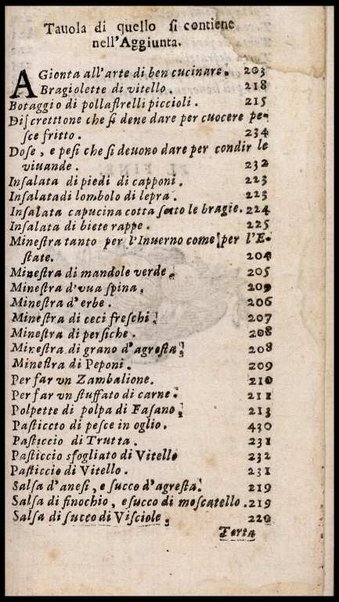 Tauola di quello si contiene
nell'Aggiunta.
AGionta all'arte di ben cucinare. 203
Bragiolette di vitello. 218
Botaggio di pollastrelli piccioli. 215
Discrettione che si dene dare per cuocere pe-
sce fritto. 234
Dose, e pesi che si deuono dare per condir le
viuande. 232
Insalata di piedi di capponi. 223
Insalata di lombolo di lepra. 223
Insalata capucina cotta sotto le bragie. 224
Insalata di biete rappe. 225
Minestra tanto per l'Inuerno come per l'E-
state. 204
Minestra di mandole verde. 205
Minestra d'vua spina. 209
Minestra d'erbe. 206
Minestra di ceci freschi. 207
Minestra di persiche. 208
Minestra di grano d'agresta. 208
Minestra di Peponi. 209
Per far vn Zambalione. 210
Per far vn stuffato di carne. 211
Polpette di polpa di Fasano. 213
Pasticcto di pesce in oglio. 430
Pasticcio di Trutta. 231
Pasticcio sfogliato di Vitello 232
Pasticcio di Vitello. 231
Salsa d'anesi, e succo d'agresta. 219
Salsa di finochio, e succo di moscatello. 219
Salsa di succo di Visciole. 220
Torta